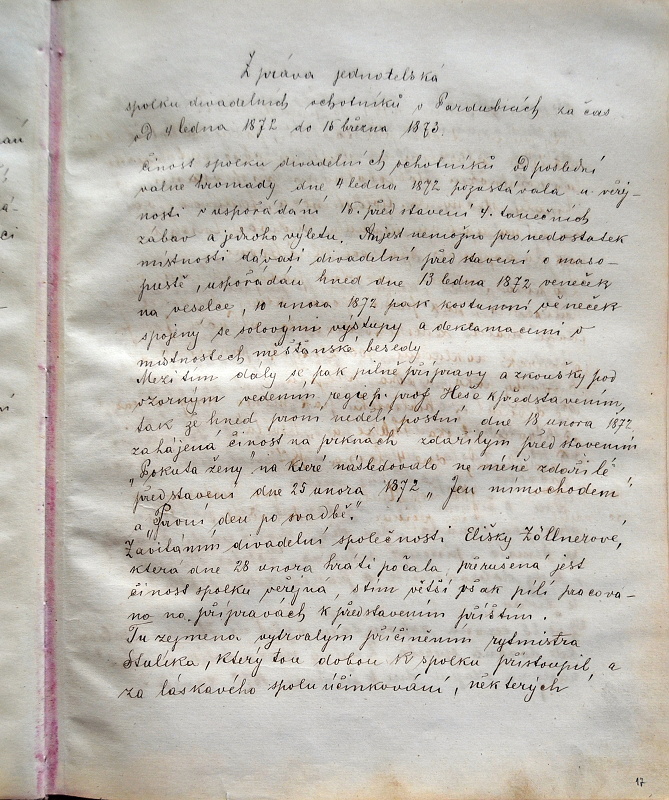 Zpráva jednotelská
spolku divadelních ochotníků v Pardubicích za čas
od 4 ledna 1872 do 16 března 1873.
činost spolku divadelních ochotníků od poslední
valné hromady dne 4 ledna 1872 pozostávala u veřej-
nosti v uspořádání 16. představení 4. tanečních
zábav a jednoho výletu. An jest nemožno pro nedostatek
místností dávati divadelní představení o maso-
pustě, uspořádán hned dne 13 ledna 1872 veneček
na veselce, 10 unora 1872 pak kostumní věneček
spojený se solovými výstupy a deklamacemi v
místnostech měšťanské besedy
Mezitím daly se pak pilné přípravy a zkoušky pod
vzorným vedením regie p. prof Heše k představením,
tak že hned první neděli postní dne 18 unora 1872
zahájená činost na prknách zdařilým představením
"Pokuta ženy" na které následovalo ne méně zdařilé
představení dne 25 unora 1872 "Jen mimochodem"
a "První den po svadbě."
Zavítáním divadelní společnosti Elišky Zöllnerové,
která dne 28 unora hráti počala, přerušená jest
činost spolku veřejná, s tím větší však pílí pracova-
no na přípravách k představením příštím.
Tu zejmena vytrvalým přičiněním rytmistra
Stulíka, který tou dobou k spolku přistoupil, a
za láskavého spolu účinkování, některých
17